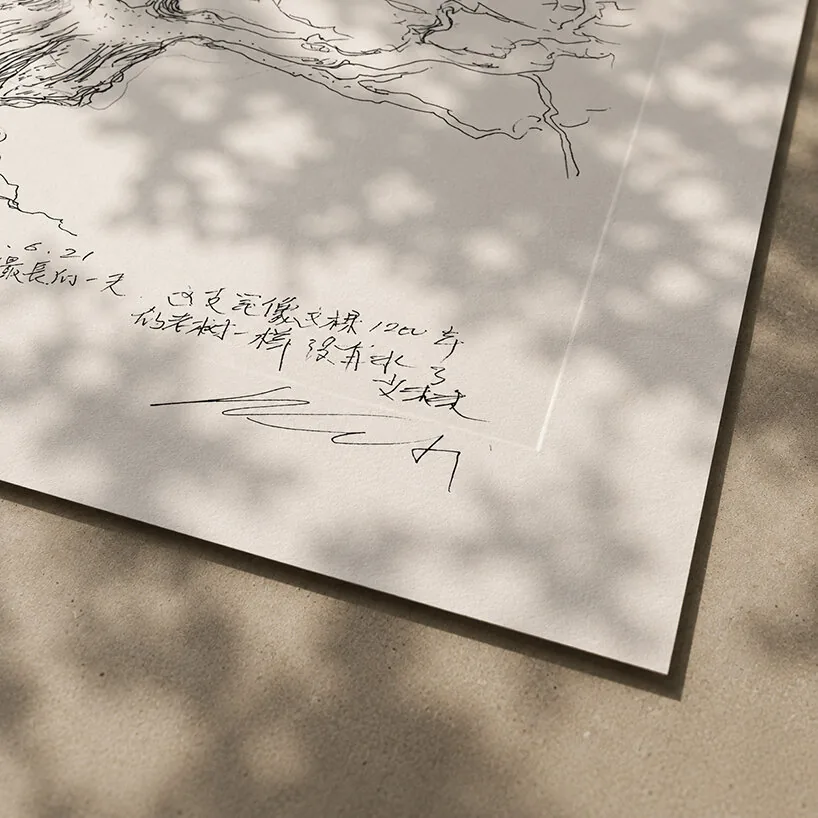 . 6. 21
最長的一天
这支笔像这棵1200年
的老树一样 没有水了